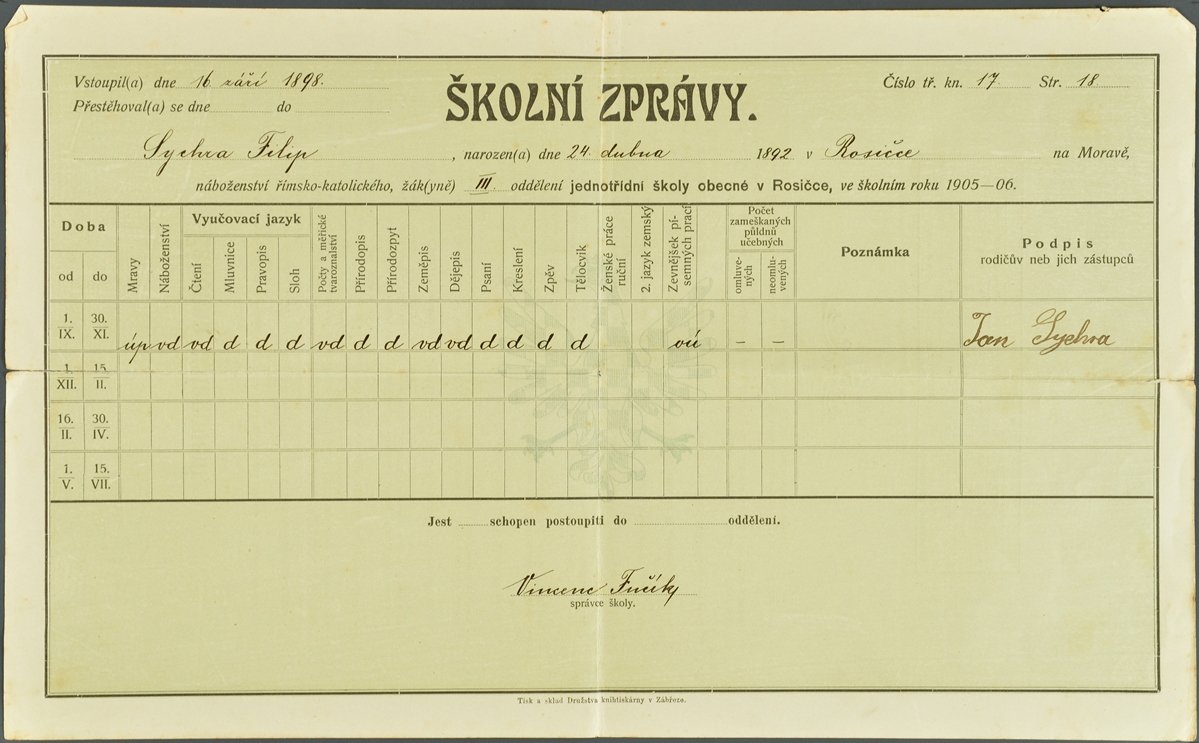 Vstoupil(a) dne 16. září 1898.
Přestěhoval(a) se dne do
ŠKOLNÍ ZPRÁVY.
Číslo tř. kn. 17 Str. 18
Sychra Filip, narozen(a) dne 24. dubna 1892 v Rosičce na Moravě,
náboženství římsko-katolického, žák(yně) III. oddělení jednotřídní školy obecné v Rosičce, ve školním roku 1905—06.
Doba
od do
Mravy
Náboženství
Vyučovací jazyk
Čtení
Mluvnice
Pravopis
Sloh
Počty a měřické tvaroznalství
Přírodopis
Přírodozpyt
Zeměpis
Dějepis
Psaní
Kreslení
Zpěv
Tělocvik
Ženské práce ruční
2. jazyk zemský
Zevnějšek písemných prací
Počet zameškaných půldnů učebných
omluvených
neomluvených
Poznámka
Podpis
rodičův neb jich zástupců
1. IX. 30. XI. úp vd vd d d d vd d d vd vd d d d d vú – – Jan Sychra
1. XII. 15. II.
16. II. 30. IV.
1. V. 15. VII.
Jest schopen postoupiti do oddělení.
Vincenc Fučík
správce školy.
Tisk a sklad Družstva knihtiskárny v Zábřeze.